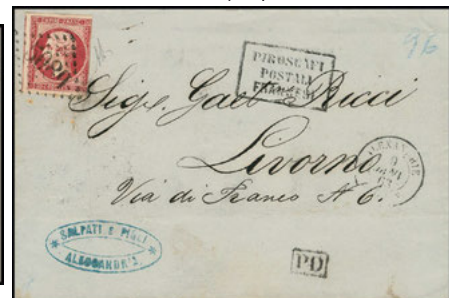 PIROSCAFI
POSTALI
FRANCESI
Sigr. Gaet Ricci
Livorno
Via di Franco N 6.
ALEXANDRIE
9
SALPATI E
ALESSANDRIA
PD